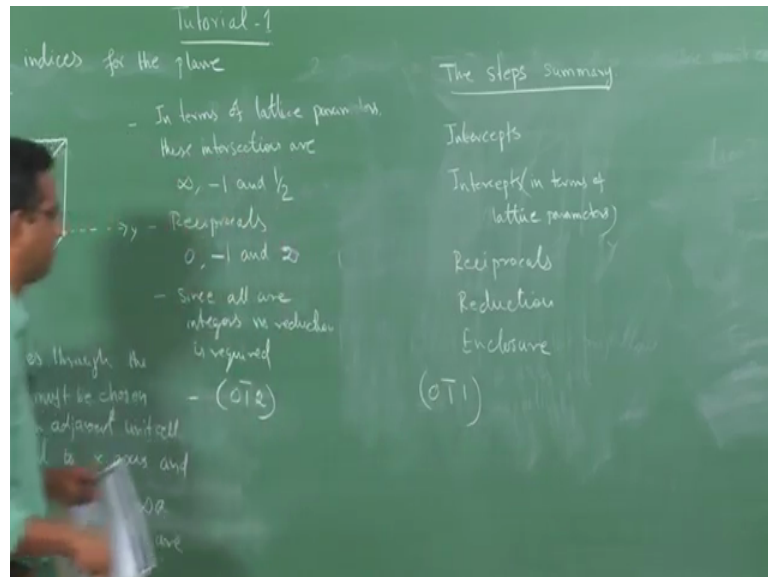 Tutorial-1
indices for the plane
- In terms of lattice parameters,
these intersections are
∞, -1 and 1/2
y - Reciprocals
0, -1 and 2
- Since all are
integers no reduction
is required
- (0T̅2)
through the
must be chosen
adjacent unit cell
to x axis and
are
The steps summary
Intercepts
Intercepts (in terms of
lattice parameters)
Reciprocals
Reduction
Enclosure
(0T̅1)